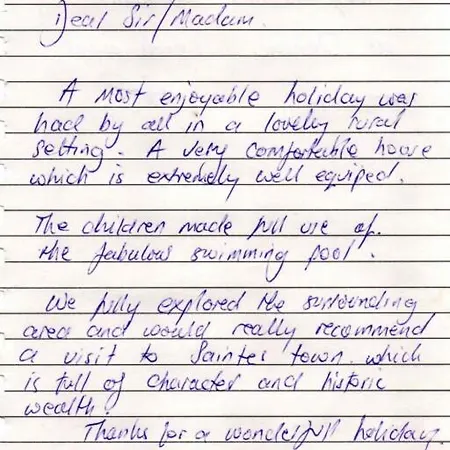 Dear Sir/Madam.
A most enjoyable holiday was
had by all in a lovely rural
setting. A very comfortable house
which is extremely well equiped.
The children made full use of.
the fabulous swimming pool.
We fully explored the surrounding
area and would really recommend
a visit to Saintes town. which
is full of character and historic
wealth.
Thanks for a wonderfull holiday.